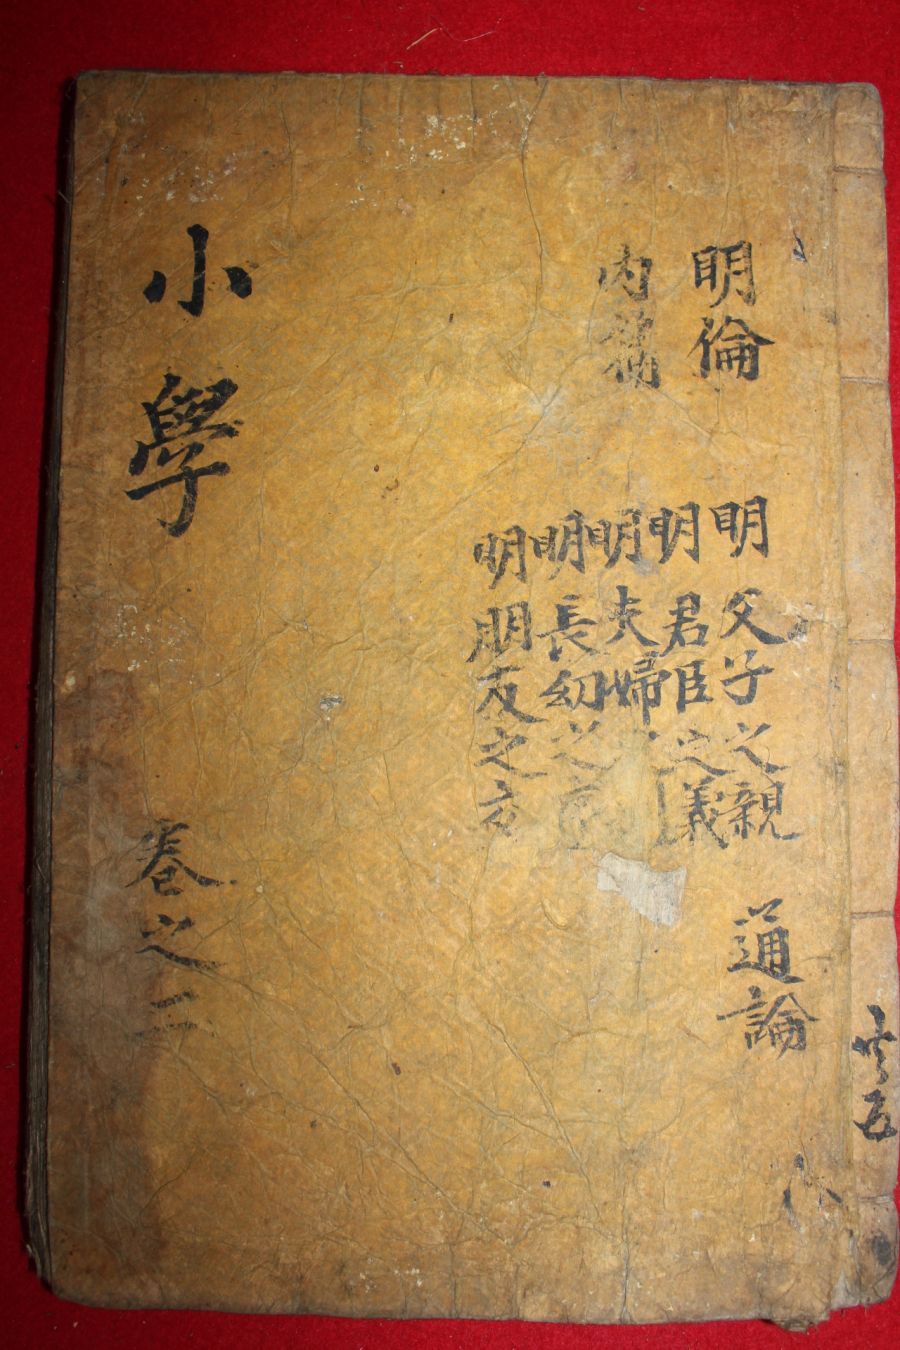 明倫
內篇
明父子之親
明君臣之義
明夫婦之
明長幼之
明朋友之交
通論
小學
卷之二
共五